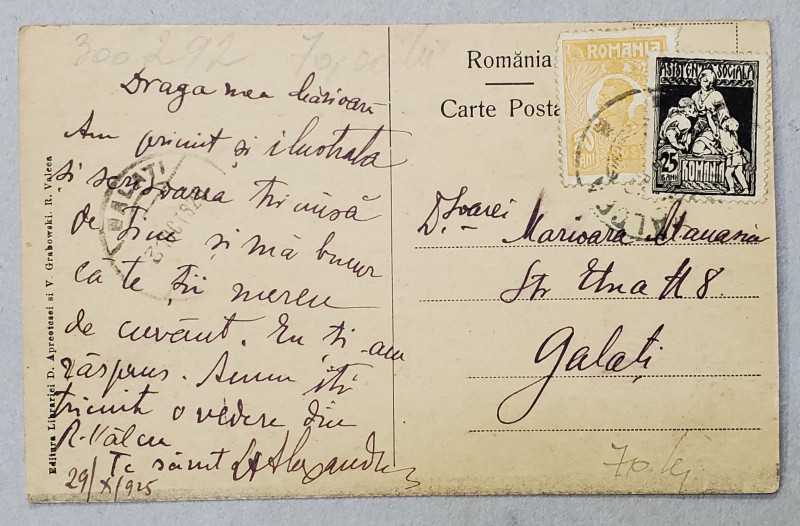 300 292 70,00 lei
Draga mea
Am primit și ilustrata
și scrisoarea trimisă
de tine și mă bucur
ca te ții mereu
de cuvânt. Eu ți-am
răspuns. Acum îți
trimit o vedere din
R-Vâlcea
Te sărut Alexandru
29/X/925
Editura Librariei D. Apreotesei si V. Grabowski. R. Valcea
GALATI
România
Carte Posta
ROMANIA
BANI
ASISTENTA SOCIALA
25
BANI
ROMANIA
D,șoarei Marioara
Str Etna № 8.
Galați
70 lei